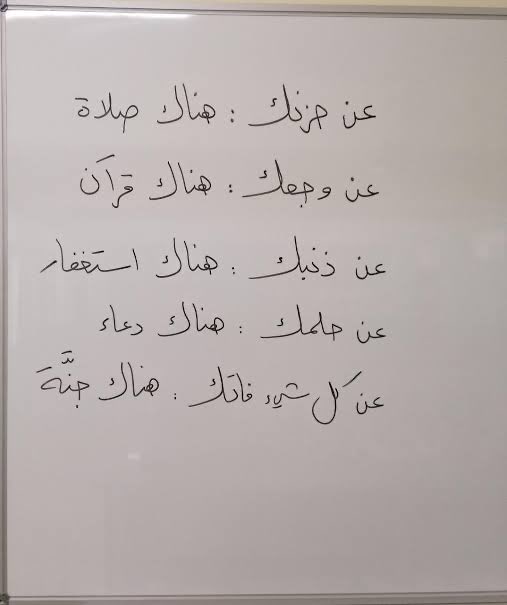 عن حزنك : هناك صلاة
عن وجعك : هناك قرآن
عن ذنبك : هناك استغفار
عن حلمك : هناك دعاء
عن كل شيء فاتك : هناك جنَّة